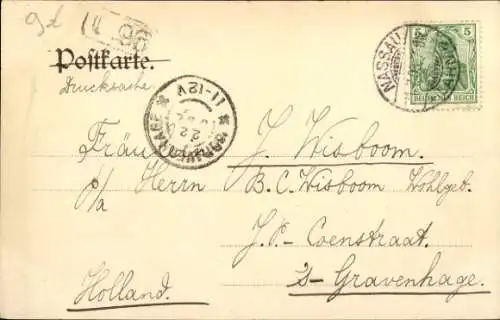 Postkarte.
Drucksache
NASSAU
5 5
DEUTSCHES REICH
11-12V
'S GRAVENHAGE
22
Fräu J. Wisboom.
p/a Herrn B.C. Wisboom Wohlgeb.
J.P. Coenstraat.
's- Gravenhage.
Holland.